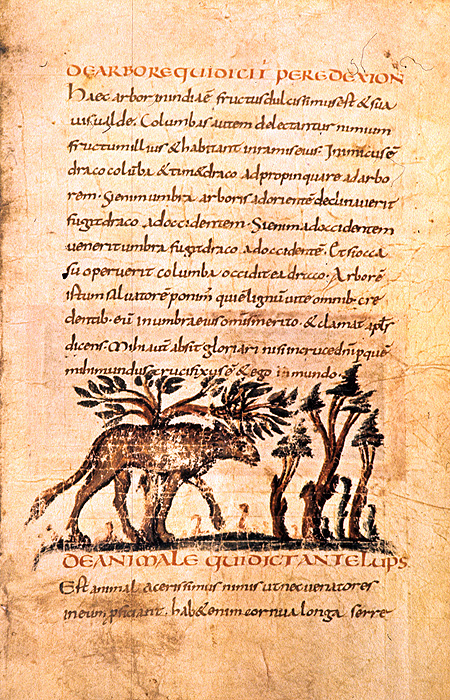 DE ARBORE QUI DICIT PEREDEXION
Haec arbor inindia ē fructus dulcissimus est & sua
uis ualde. Columbas autem delectantur nimium
fructum illius & habitant in ramis eius. Inimicus ē
draco colūba & tim& draco adpropinquare ad arbo
rem. Si enim umbra arboris ad orientē declinauerit
fugit draco ad occidentem. Si enim ad occidentem
uenerit umbra fugit draco ad occidentē. Et si occa
su operuerit columba occidit ea draco. Arborē
istum saluatorem qui ē lignū uite omnib. cre
dentib. in umbra eius & clamat apls
dicens. Mihi aut absit gloriari nisi in cruce dni p quem
mihi mundus crucifixus ē & ego in mundo.
DE ANIMALE QUI DICIT ANTELUPS.
Est animal acerissimus nimis ut nec uenatores
in eum hab& enim cornua longa serre